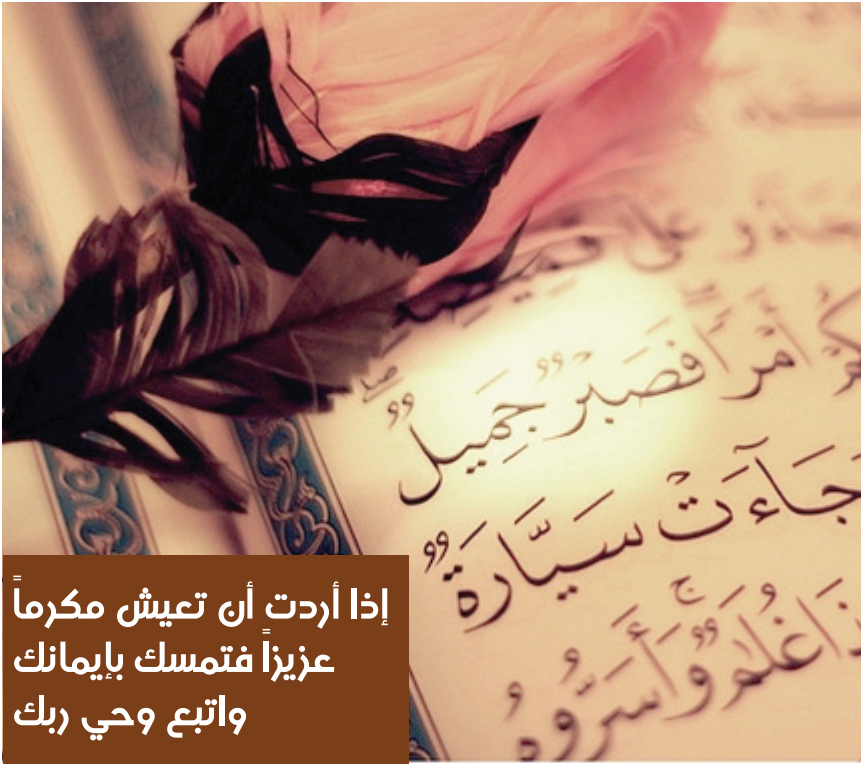 على
أَمْرًا فَصَبْرٌ جَمِيلٌ
جَآءَتْ سَيَّارَةٌ
غُلَٰمٌ وَأَسَرُّوهُ
إذا أردت أن تعيش مكرماً
عزيزاً فتمسك بإيمانك
واتبع وحي ربك